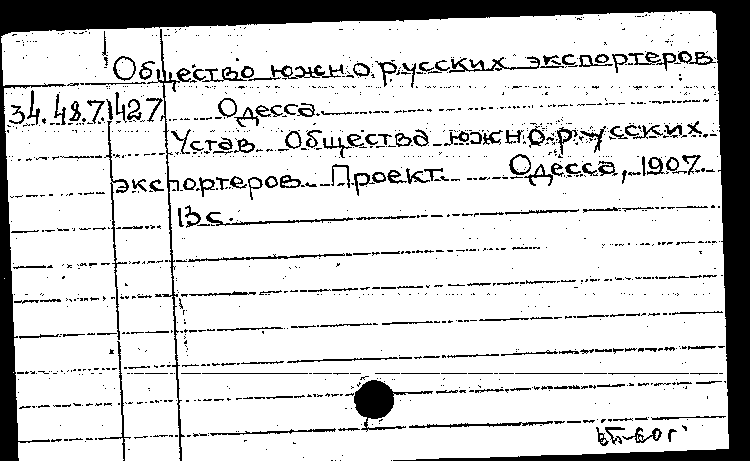 Общество южнорусских экспортеров
34.48.7.427 Одесса.
Устав Общества южнорусских
экспортеров. Проект. Одесса, 1907.
13 с.